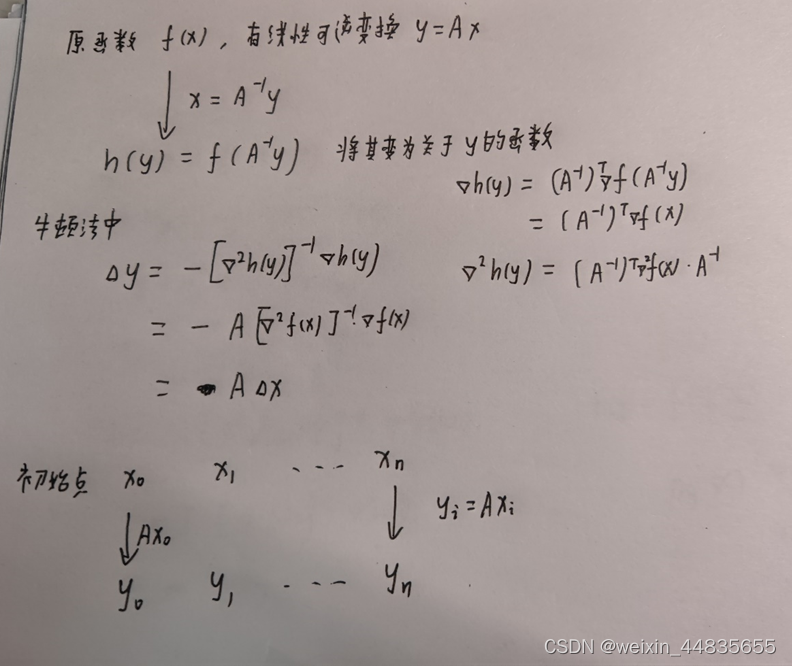 原函数 f(x), 有线性可逆变换 y=Ax
x = A⁻¹y
h(y) = f(A⁻¹y) 将其变为关于 y 的函数
∇h(y) = (A⁻¹)ᵀ∇f(A⁻¹y)
= (A⁻¹)ᵀ∇f(x)
牛顿法中
Δy = -[∇²h(y)]⁻¹∇h(y)
∇²h(y) = (A⁻¹)ᵀ∇²f(x)·A⁻¹
= - A[∇²f(x)]⁻¹·∇f(x)
= A Δx
初始点 x₀ x₁ ... xₙ
Ax₀
yᵢ=Axᵢ
y₀ y₁ ... yₙ
CSDN @weixin_44835655